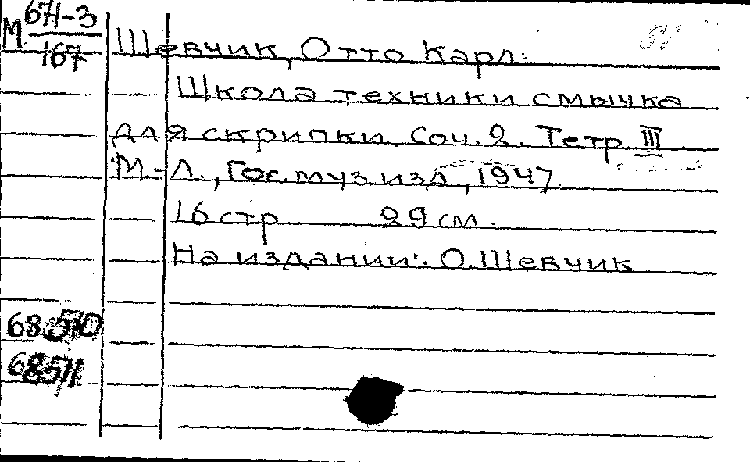 М 671-3
167
Шевчик, Отто Карл.
Школа техники смычка
для скрипки. Соч. 2. Тетр. III
М.-Л., Гос. муз. изд., 1947.
16 стр. 29 см.
На издании: О. Шевчик
68510
68511